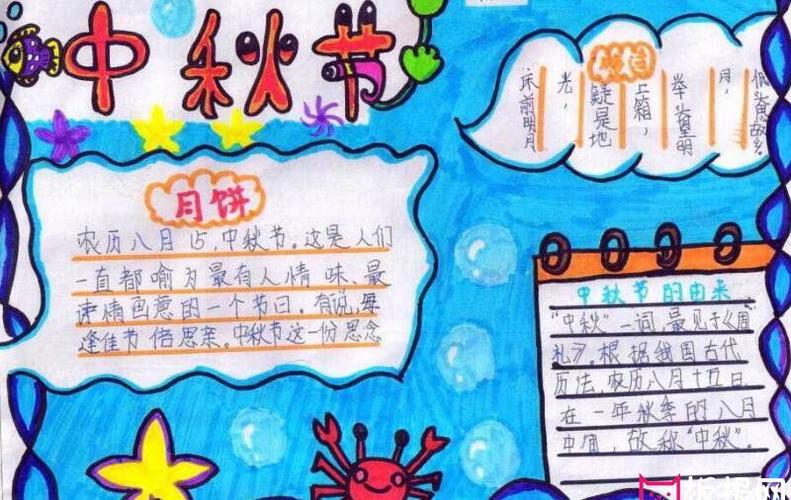 中秋节
床前明月
光，
疑是地
上箱，
举头望明
月，
低头思故乡
月饼
农历八月15，中秋节。这是人们
一直都喻为最有人情味、最
诗情画意的一个节日。有说，每
逢佳节倍思亲。中秋节这一份思念
中秋节的由来
“中秋”一词，最见于《周
礼》，根据我国古代
历法，农历八月十五日
在一年秋季的八月
中旬，故称“中秋”。